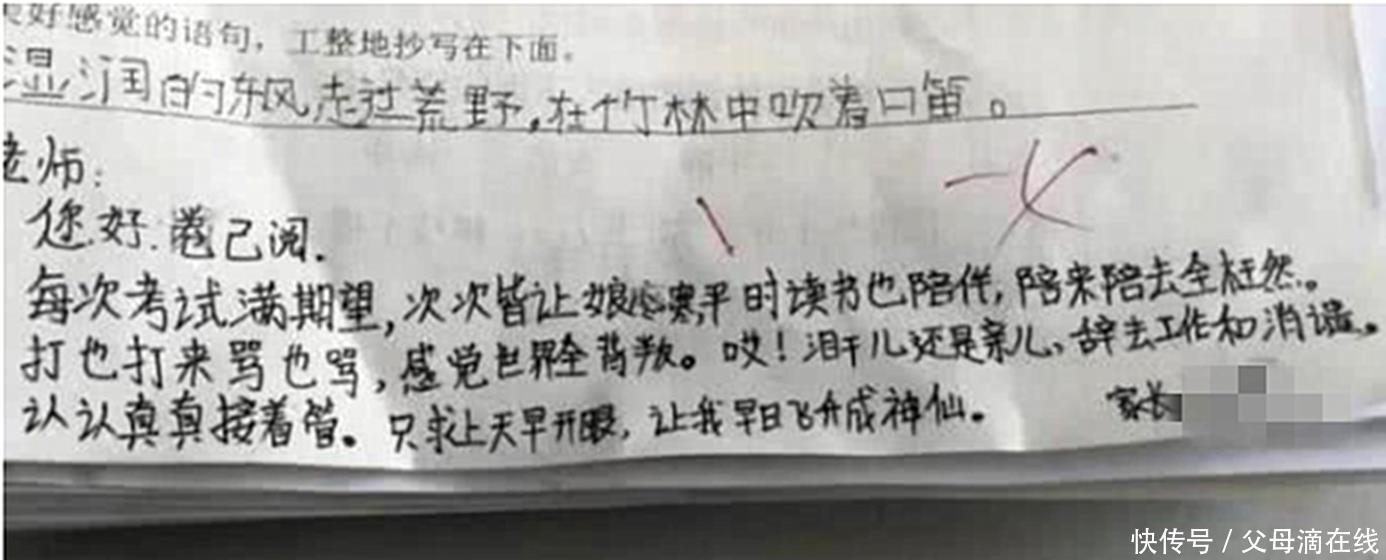 美好感觉的语句，工整地抄写在下面。
湿润的东风走过荒野，在竹林中吹着口笛。
老师：
您好.卷已阅.
每次考试满期望，次次皆让娘心寒,平时读书也陪伴，陪来陪去全枉然。
打也打来骂也骂，感觉世界全背叛。哎！泪干儿还是亲儿、辞去工作和消遣。
认认真真接着管。只求上天早开眼，让我早日飞升成神仙。
家长
快传号 / 父母滴在线